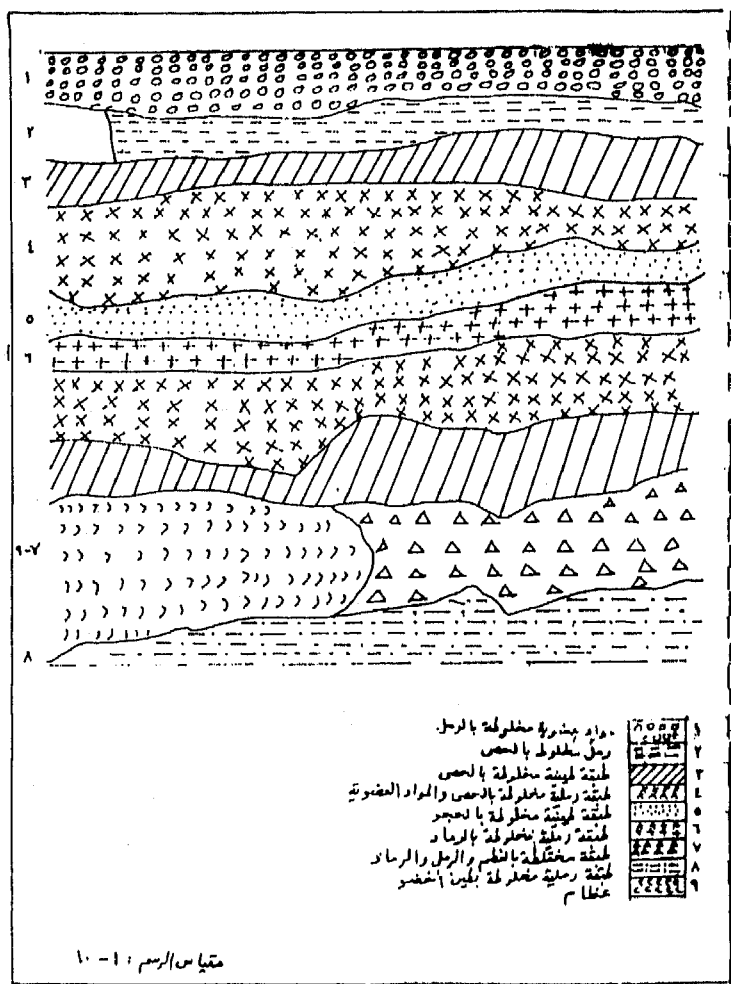 ١
٢
٣
٤
٥
٦
٧-٩
٨
مواد عضوية مخلوطة بالرمل ١
رمل مخلوط بالحصى ٢
طبقة طينية مخلوطة بالحصى ٣
طبقة رملية مخلوطة بالحصى والمواد العضوية ٤
طبقة طينية مخلوطة بالحجر ٥
طبقة رملية مخلوطة بالرماد ٦
طبقة مختلطة بالعظم والرمل والرماد ٧
طبقة رملية مخلوطة بطين أخضر ٨
عظام ٩
مقياس الرسم : ١-١٠